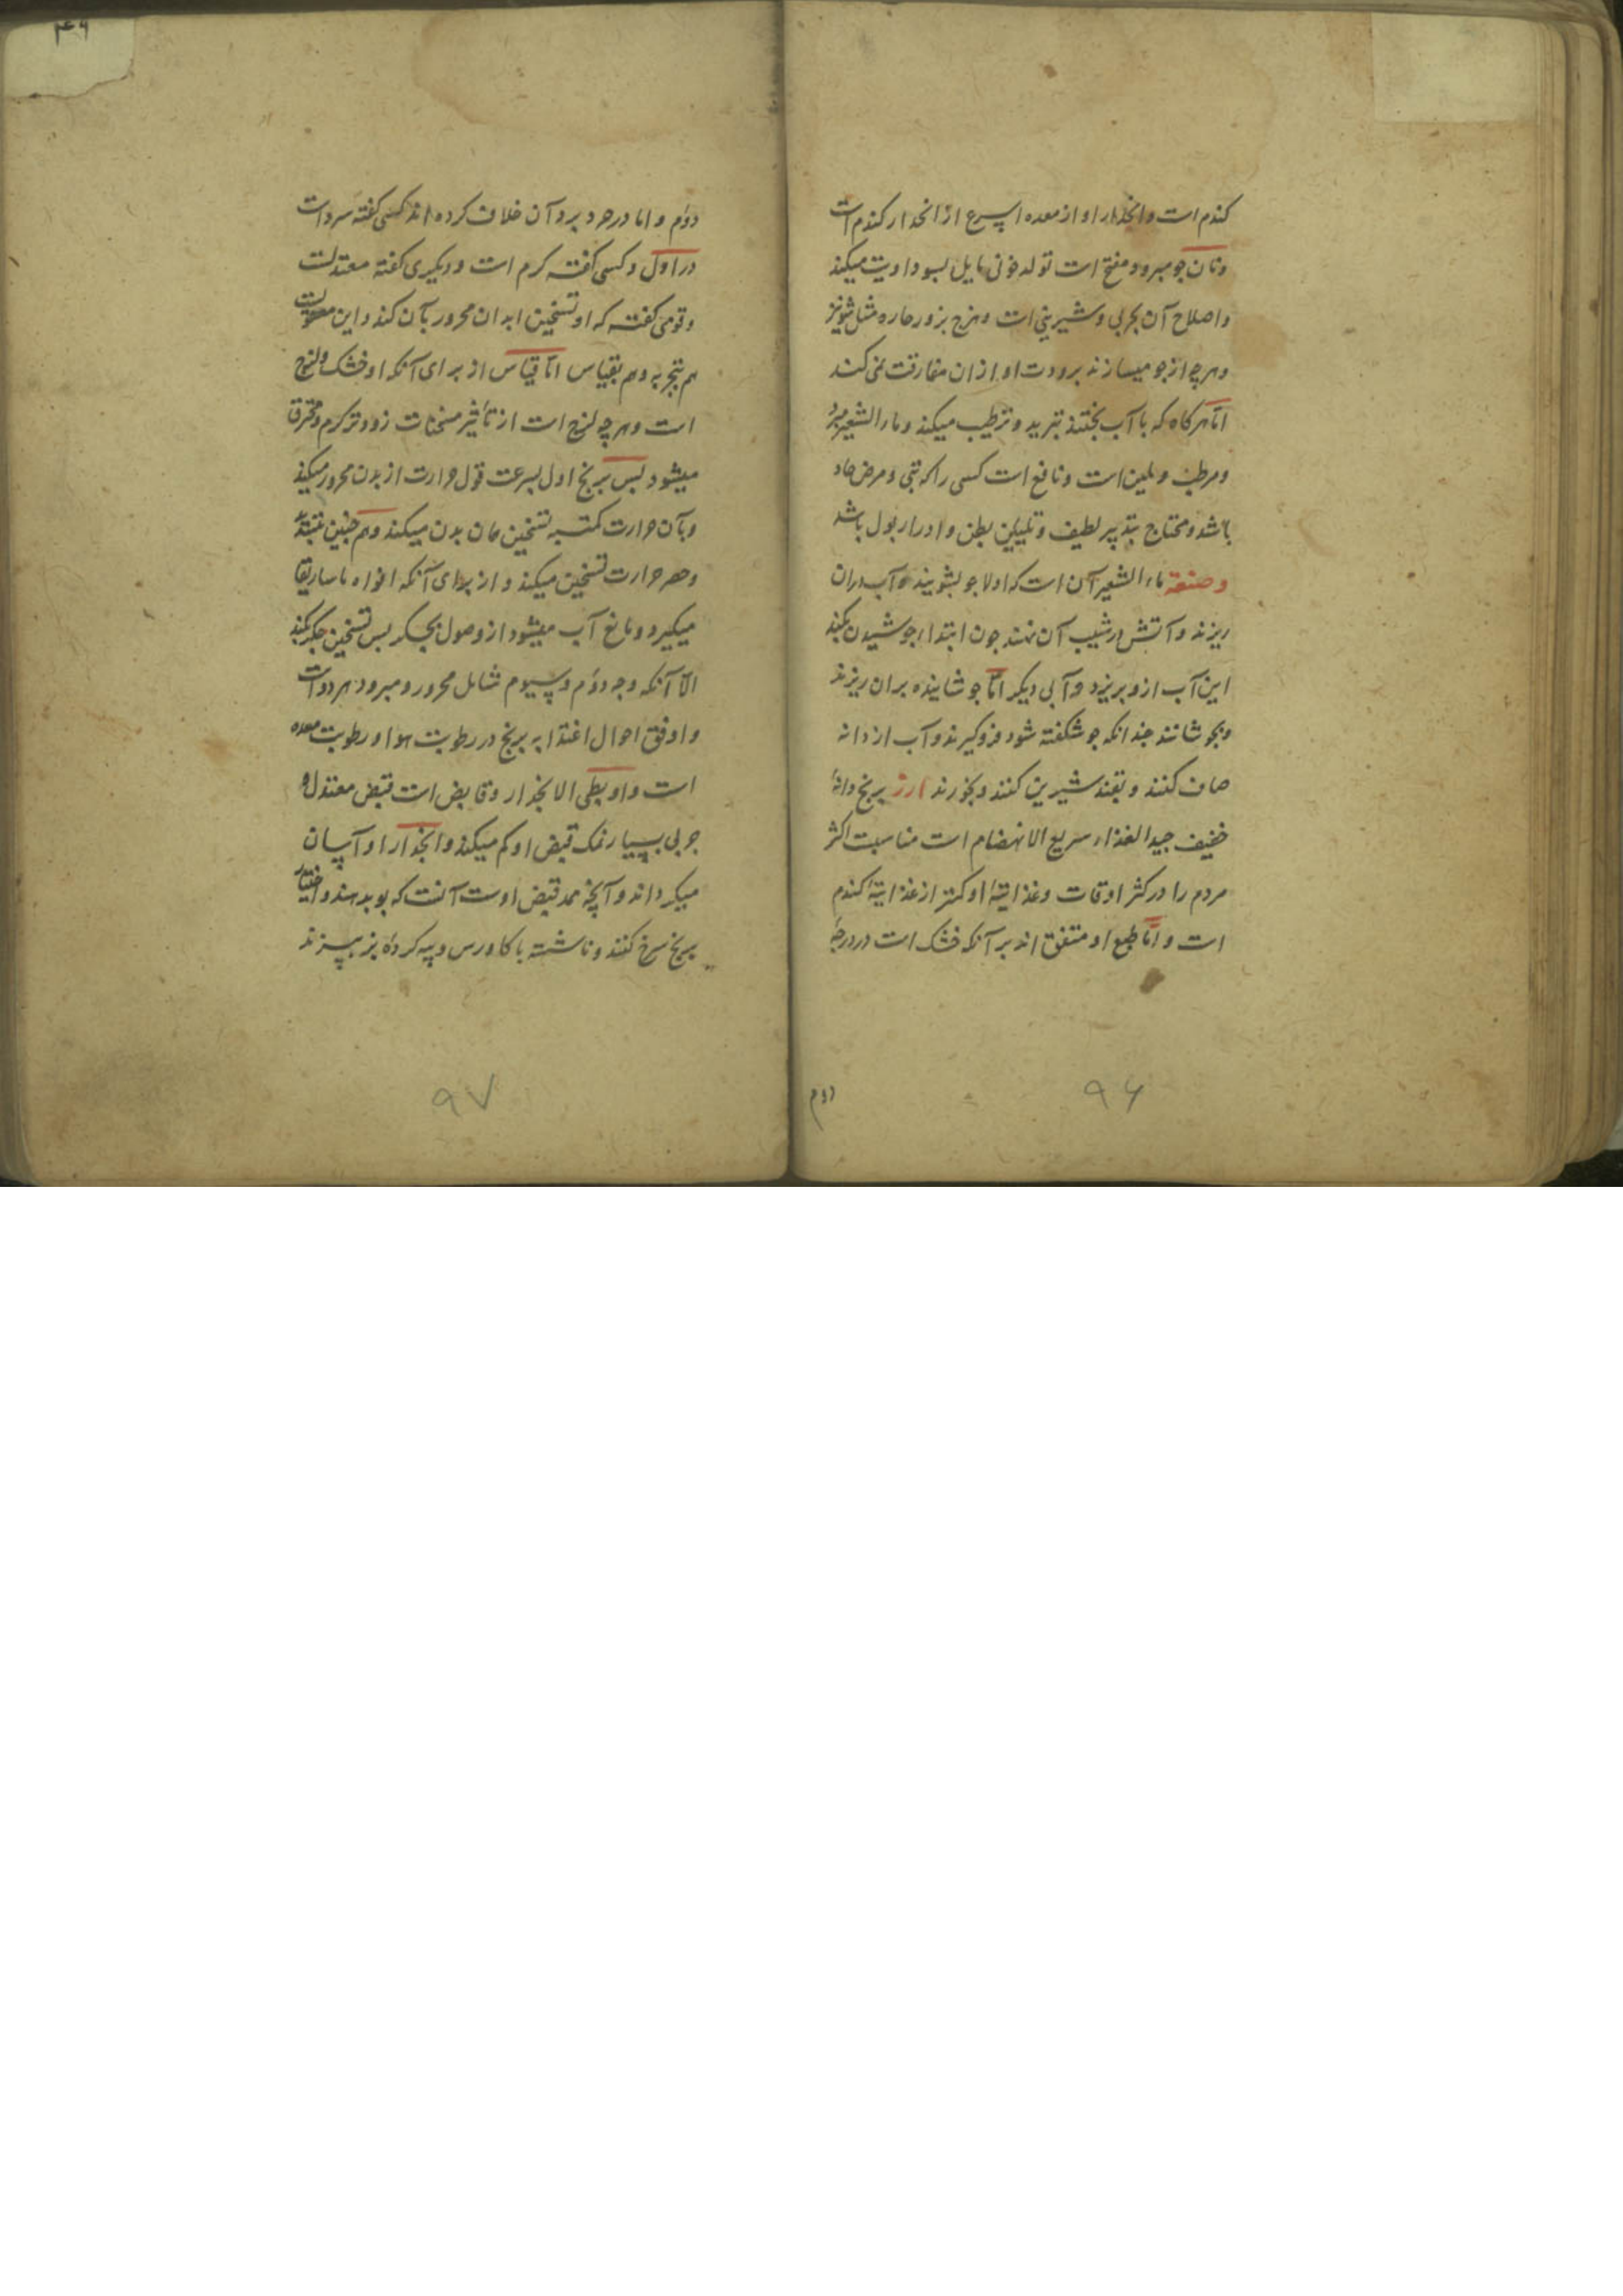 کندم است و انحدار او از معده اسرع از انحدار کندم است
و نان جو مبرد و منفخ است تولد خونی مایل بسوداویت میکند
و اصلاح آن بچربی و شیرینی است و مزج بزور حاره مثل شونیز
و هرچه از جو میسازند برودت او ازان مفارقت نمی کند
امّا هرکاه که با آب بختند تبرید و ترطیب میکند و ماء الشعیر مبرد
و مرطب و ملین است و نافع است کسی را که تبی و مرض حاد
باشد و محتاج بتدبیر لطیف و تلیین بطن و ادرار بول باشد
و صنعة ماء الشعیر آن است که اولا جو بشویند و آب بران
ریزند و آتش در شیب آن نهند جون ابتداء جوشیدن بکند
این آب ازو بریزد و آبی دیکر امّا جوشانیده بران ریزند
و بجوشانند جندانکه جو شکفته شود فروکیرند و آب از دانه
صاف کنند و بقند شیرین کنند و بخورند ارز برنج دانهٔ
خفیف جید الغذاء سریع الانهضام است مناسبت اکثر
مردم را در کثر اوقات و غذایتهٔ او کمتر از غذایتهٔ کندم
است و امّا طبع او متفق اند بر آنکه خشک است در درجهٔ
دوم
۹۶
۴۹
دوّم و اما در حر و برد آن خلاف کرده اند کسی کفته سرد است
در اول و کسی کفته کرم است و دیکری کفته معتدلست
و قومی کفته که او تسخین ابدان محرور بآن کند و این
هم بتجربه و هم بقیاس امّا قیاس از برای آنکه او خشک و لزج
است و هرچه لزج است از تأثیر مسخنات زودتر کرم و محترق
میشود بس برنج اول بسرعت قبول حرارت از بدن محرور میکند
و بآن حرارت مکتسبه تسخین مان بدن میکند و هم جنین
و حصر حرارت تسخین میکند و از برای آنکه افواه ماساریقا
میکیرد و مانع آب میشود از وصول بجکر بس تسخین جکر بکند
الّا آنکه وجه دوّم و سیوم شامل محرور و مبرود هر دو است
و اوفق احوال اغتذا به برنج در رطوبت هوا و رطوبت معده
است و او بطی الانحدار و قابض است قبض معتدل و
جربی بسیار نمک قبض او کم میکند و انحدار او آسان
میکرداند و آنچه ممد قبض اوست آنست که بو بدهند و
برنج سرخ کنند و ناشسته با کاورس و پیه کردهٔ بز ببزند
۹۷